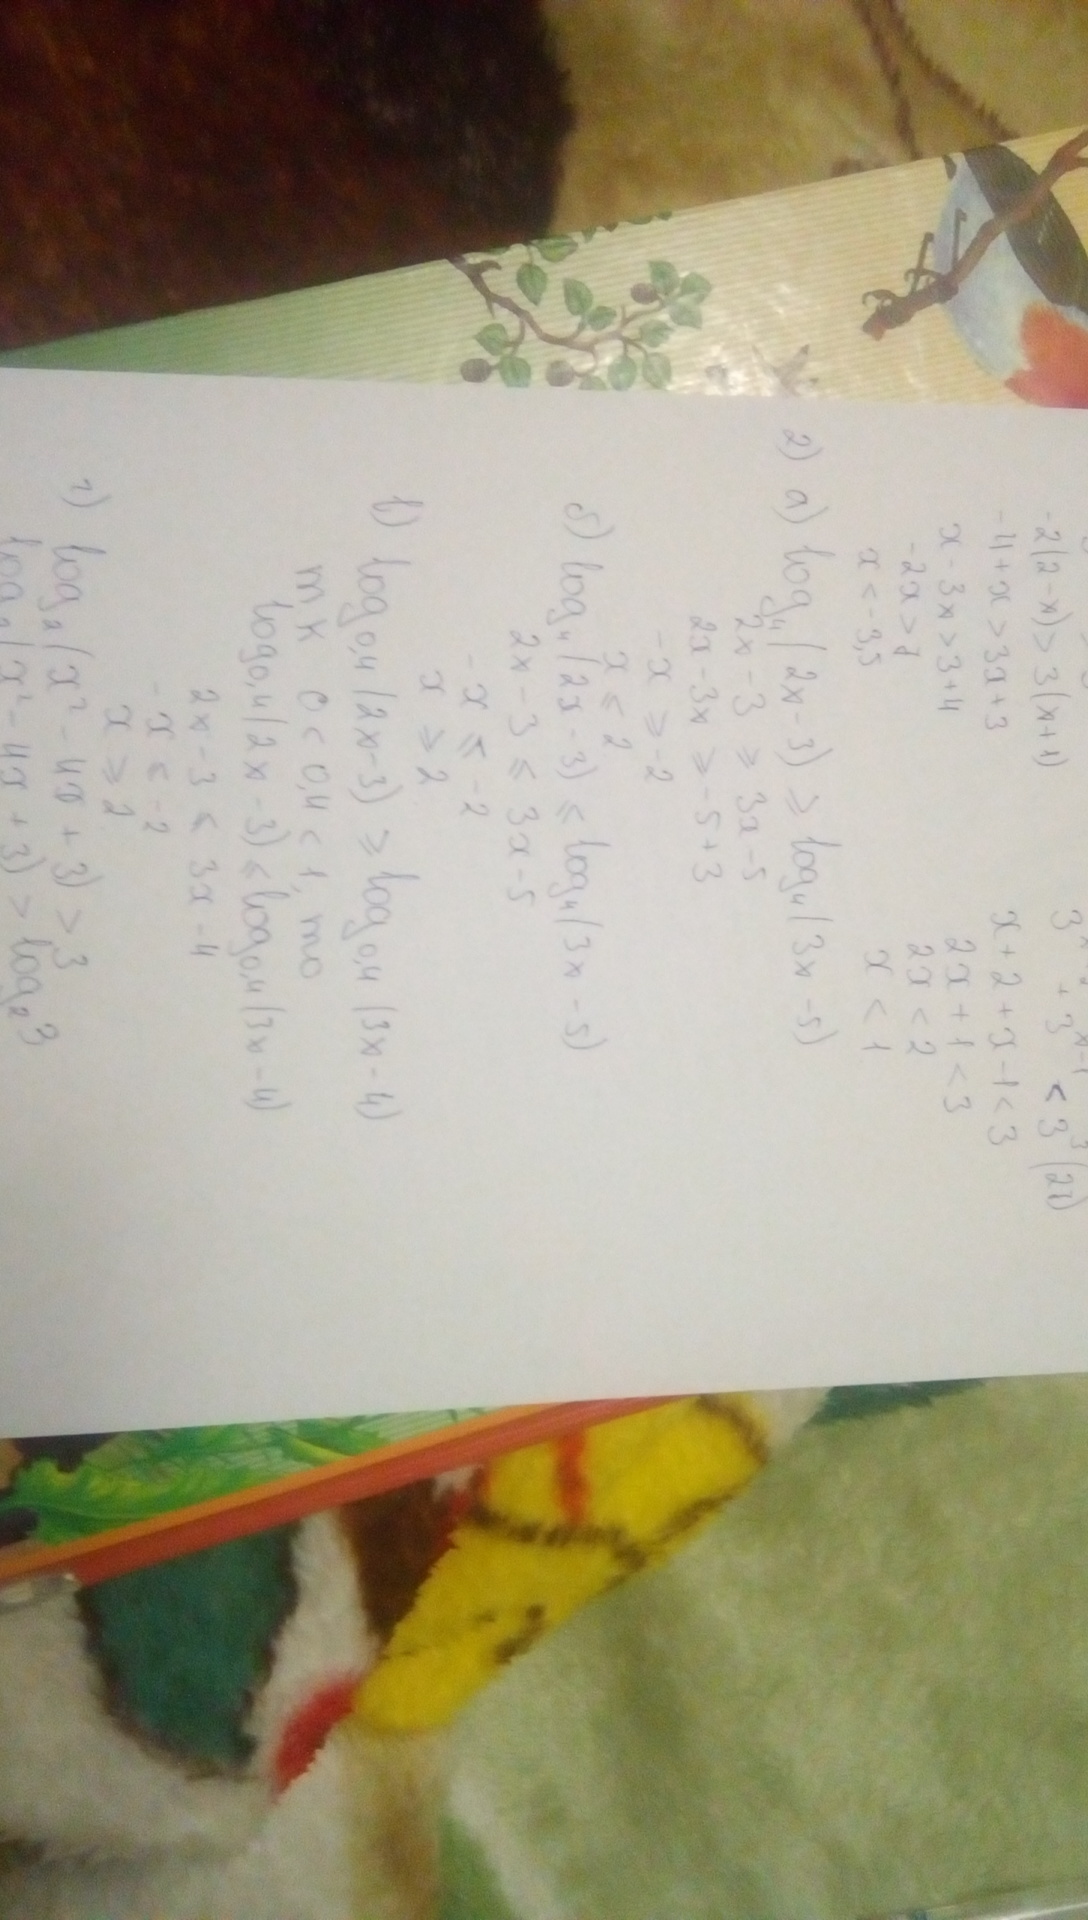 -2(2-x) > 3(x+1)
-4+x > 3x+3
x-3x > 3+4
-2x > 7
x < -3,5
+ 3^{x-1} < 3^3 (27)
x+2+x-1 < 3
2x+1 < 3
2x < 2
x < 1
2) а) log_4(2x-3) ≥ log_4(3x-5)
2x-3 ≥ 3x-5
2x-3x ≥ -5+3
-x ≥ -2
x ≤ 2
б) log_4(2x-3) ≤ log_4(3x-5)
2x-3 ≤ 3x-5
-x ≤ -2
x ≥ 2
в) log_{0,4}(2x-3) ≥ log_{0,4}(3x-4)
т к 0 < 0,4 < 1, то
log_{0,4}(2x-3) ≤ log_{0,4}(3x-4)
2x-3 ≤ 3x-4
-x ≤ -2
x ≥ 2
г) log_2(x²-4x+3) > 3
log_2(x²-4x+3) > log_2 3